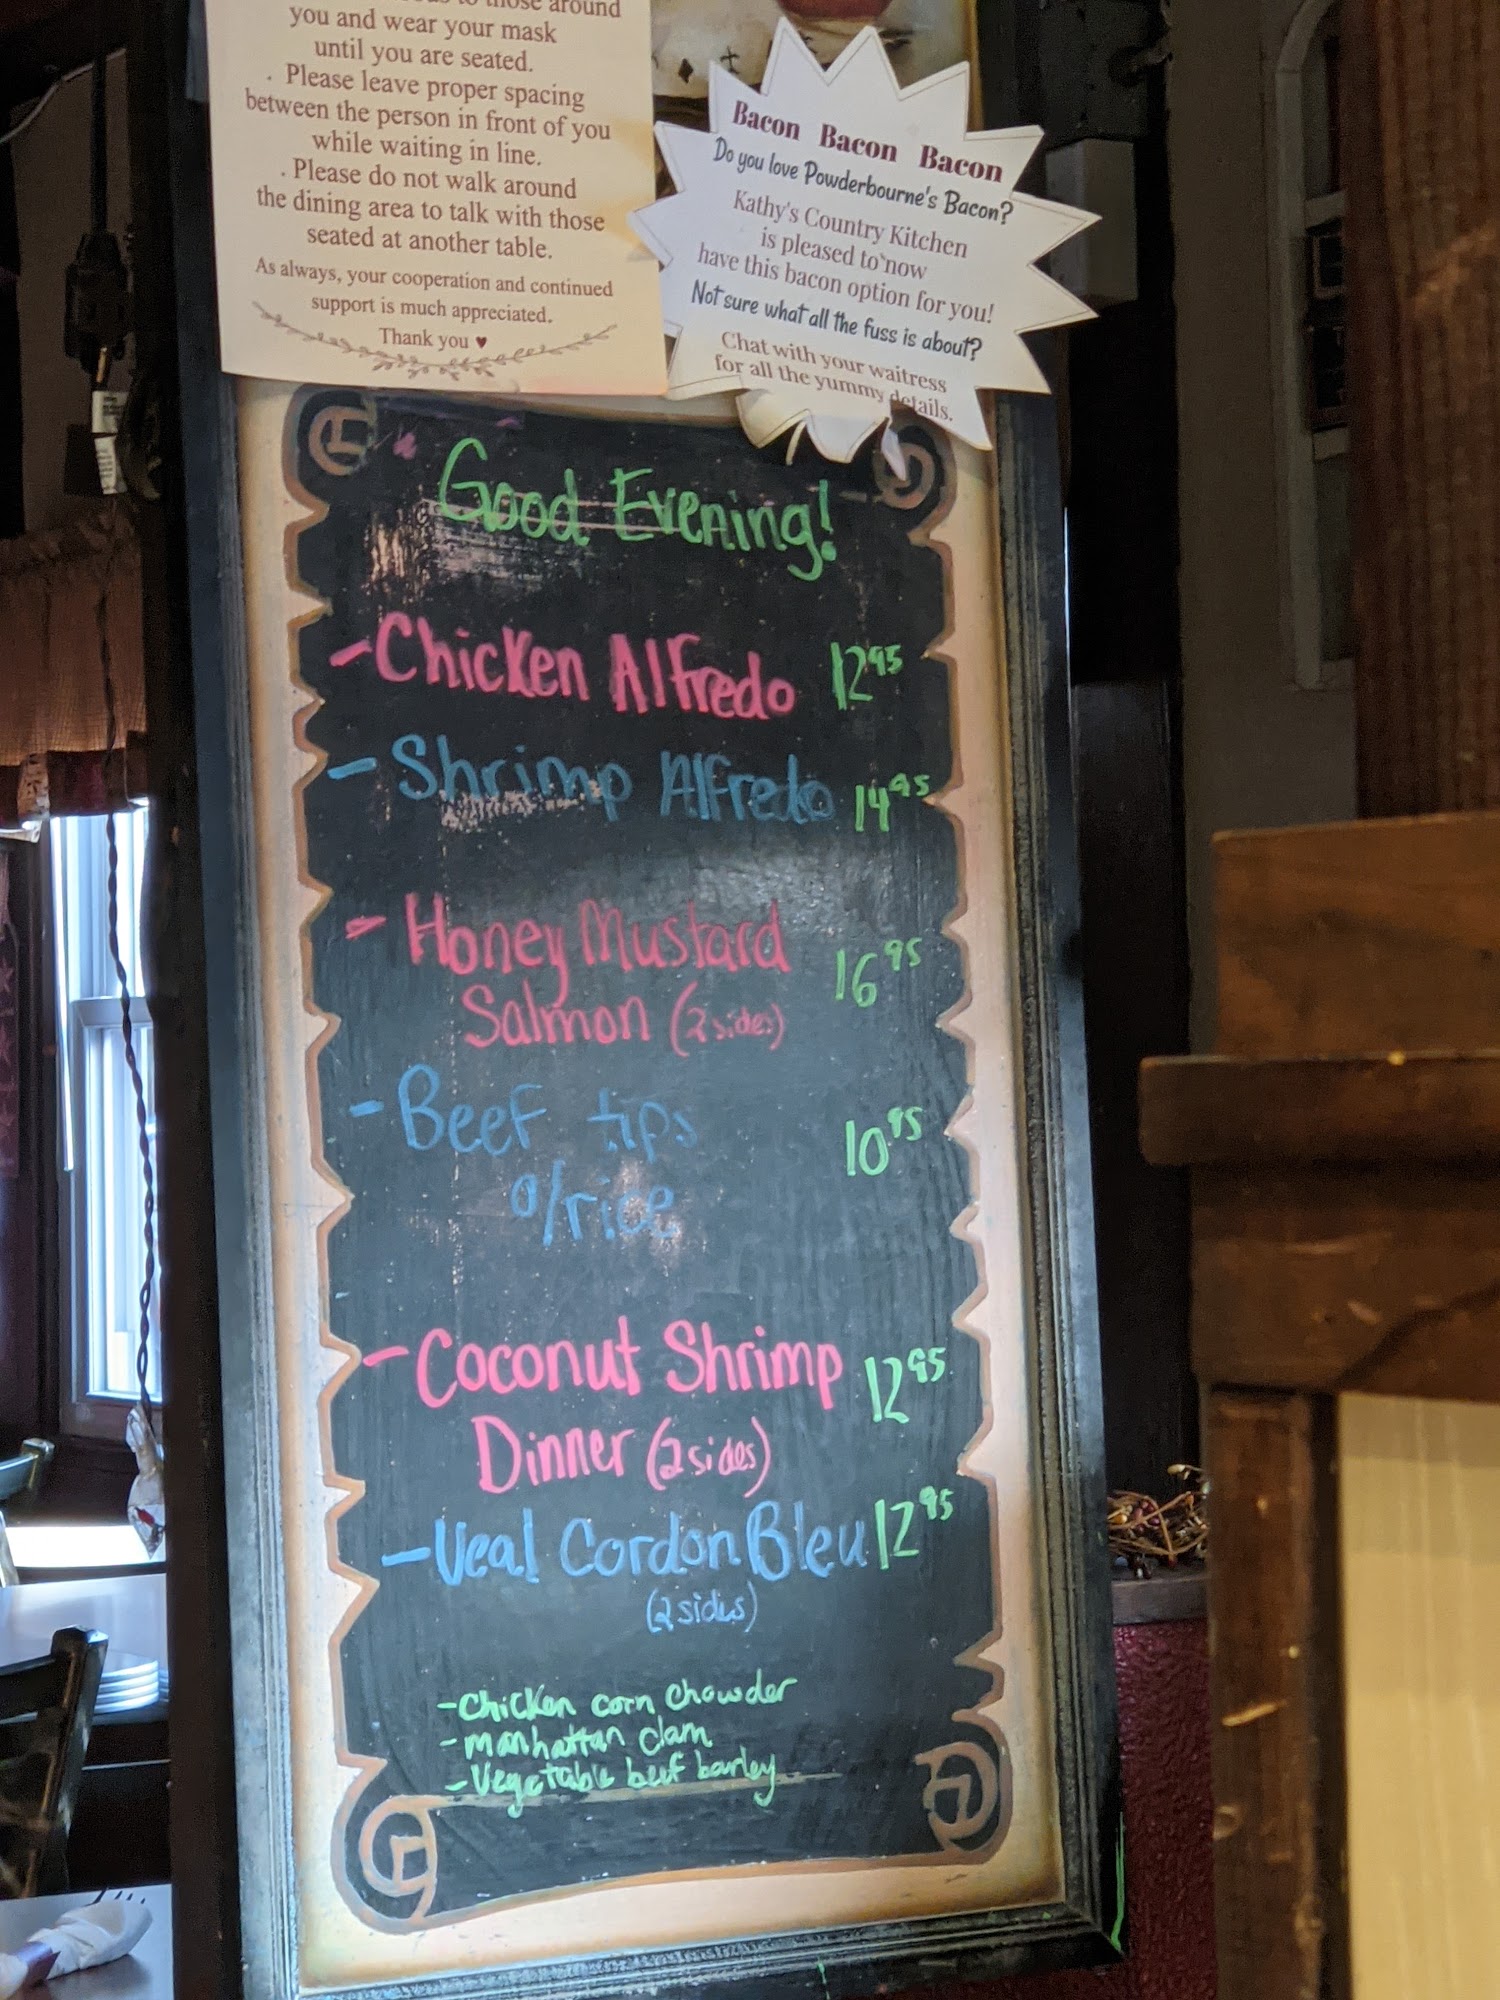 to those around
you and wear your mask
until you are seated.
. Please leave proper spacing
between the person in front of you
while waiting in line.
. Please do not walk around
the dining area to talk with those
seated at another table.
As always, your cooperation and continued
support is much appreciated.
Thank you ♥
Bacon Bacon Bacon
Do you love Powderbourne's Bacon?
Kathy's Country Kitchen
is pleased to now
have this bacon option for you!
Not sure what all the fuss is about?
Chat with your waitress
for all the yummy details.
Good Evening!
- Chicken Alfredo 12 95
- Shrimp Alfredo 14 95
- Honey Mustard 16 95
Salmon (2 sides)
- Beef tips 10 95
o/rice
- Coconut Shrimp 12 95
Dinner (2 sides)
- Veal Cordon Bleu 12 95
(2 sides)
- Chicken corn chowder
- manhattan clam
- Vegetable beef barley